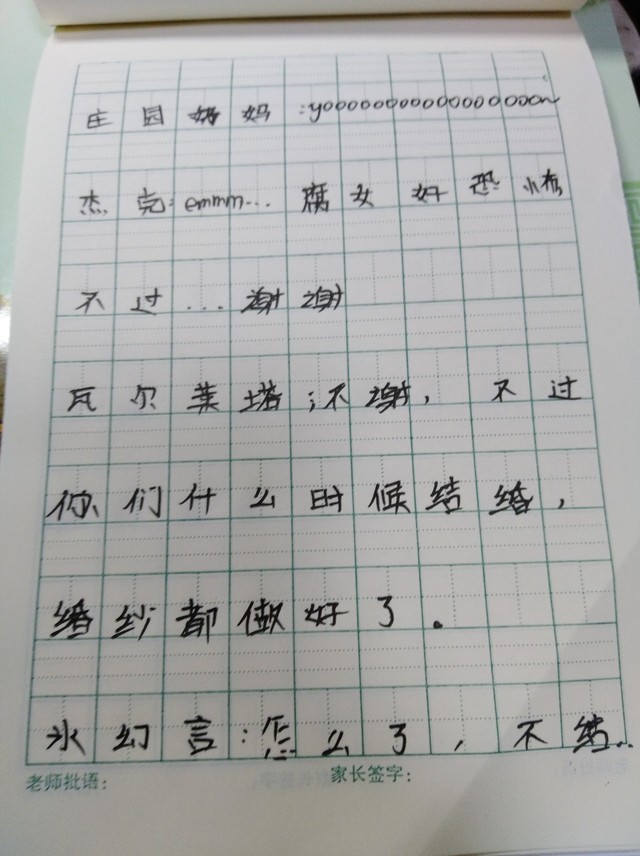 庄园奶妈:yooooooooooooooooon
杰克:emmm... 腐女好恐怖
不过...谢谢
瓦尔莱塔:不谢,不过
你们什么时候结婚,
婚纱都做好了。
冰幻言:怎么了,不结..
老师批语: 家长签字: